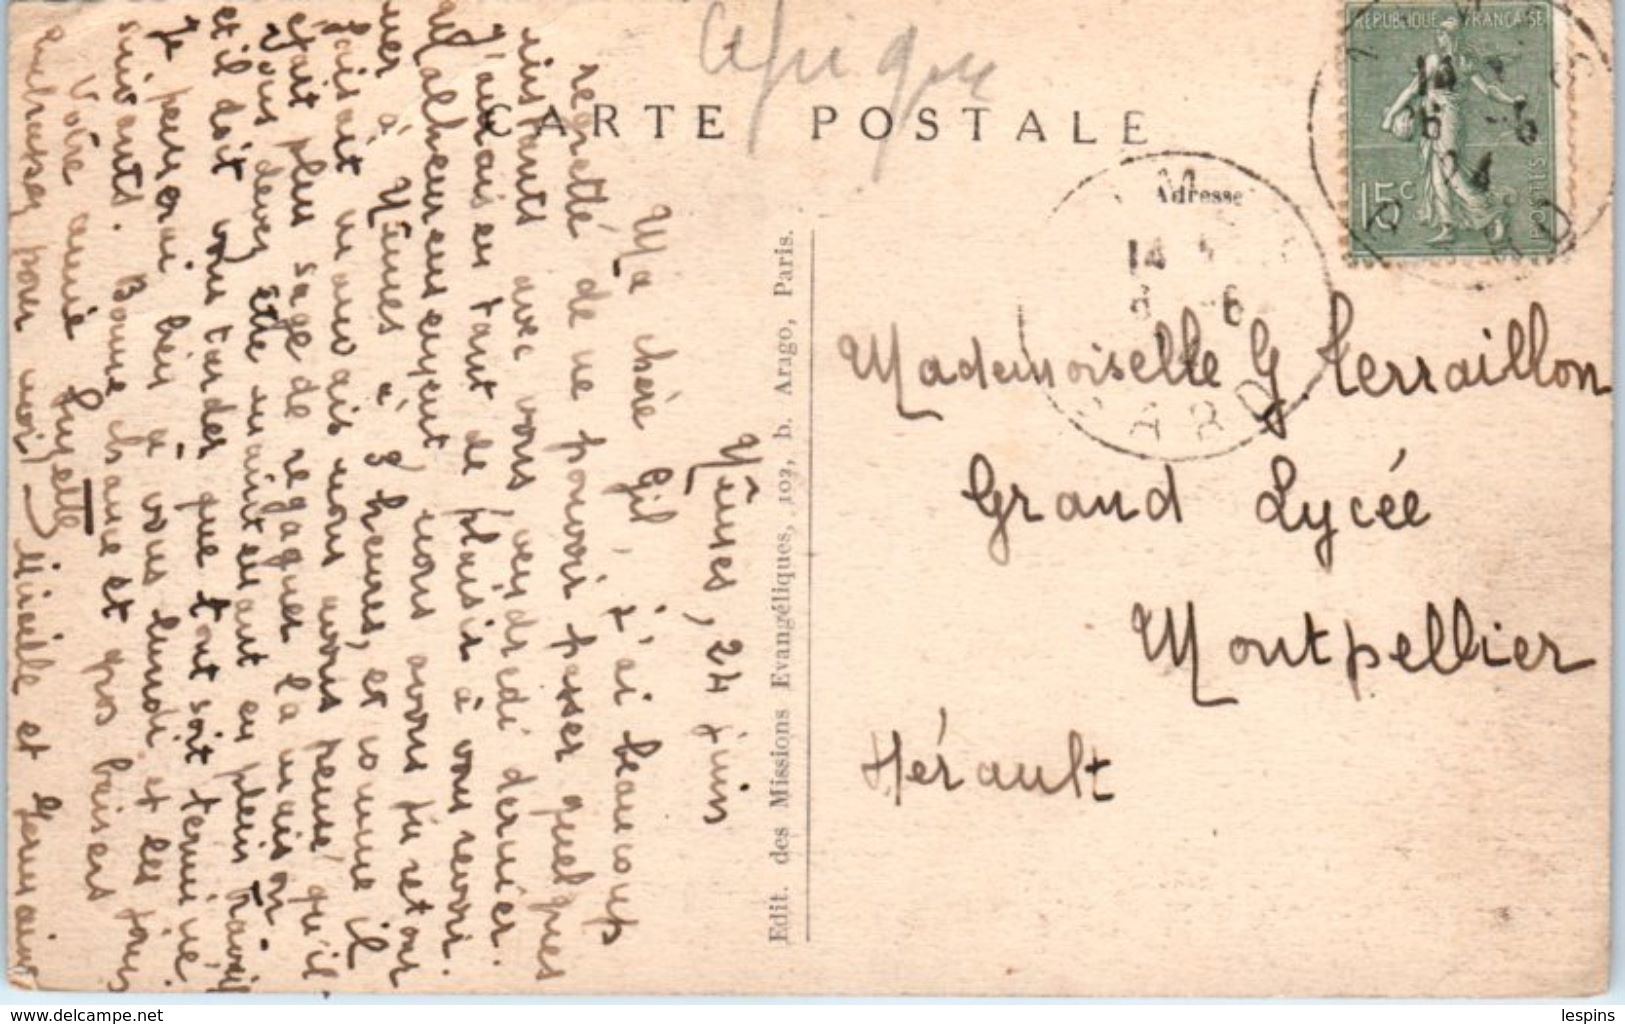 Afrique
CARTE POSTALE
Adresse
REPUBLIQUE FRANCAISE
15c
POSTES
14
26 -6
24
GARD
14
-6
GARD
Mademoiselle G Terraillon
Grand Lycée
Montpellier
Hérault
Edit. des Missions Evangéliques, 102, b. Arago, Paris.
Nîmes, 24 juin
Ma chère Gil, j'ai beaucoup
regretté de ne pouvoir passer quelques
instants avec vous, vendredi dernier.
J'aurais eu tant de plaisir à vous revoir.
Malheureusement, nous avons fu retour
ner à Nîmes à 9 heures, et comme il
faisait mauvais nous avons pensé qu'il
était plus sage de regagner la maison
Vous devez être maintenant en plein travail
et il doit vous tarder que tout soit terminé
Je penserai bien à vous lundi et les jours
suivants. Bonne chance et gros baisers
Votre amie Suzette
embrassez pour moi Mireille et Germaine
lespins
www.delcampe.net